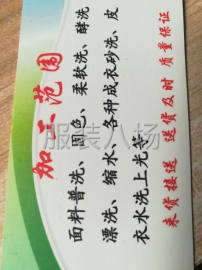 加工范围
面料普洗、固色、柔软洗、酵洗
漂洗、缩水、各种成衣砂洗、皮
衣水洗上光等
来货接送 送货及时 质量保证
服装八场